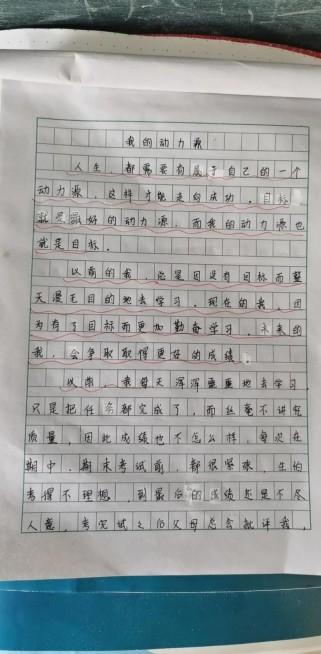 我的动力源
人生，都需要有属于自己的一个
动力源，这样才能走向成功。目标
就是最好的动力源，而我的动力源也
就是目标。
以前的我，总是因没有目标而整
天漫无目的地去学习。现在的我，因
为有了目标而更加勤奋学习。未来的
我，会争取取得更好的成绩。
以前，我每天浑浑噩噩地去学习，
只是把任务都完成了，而丝毫不讲究
质量，因此成绩也不怎么样，每次在
期中、期末考试前，都很紧张，生怕
考得不理想，到最后的成绩还是不尽
人意，考完试之后父母总会批评我，